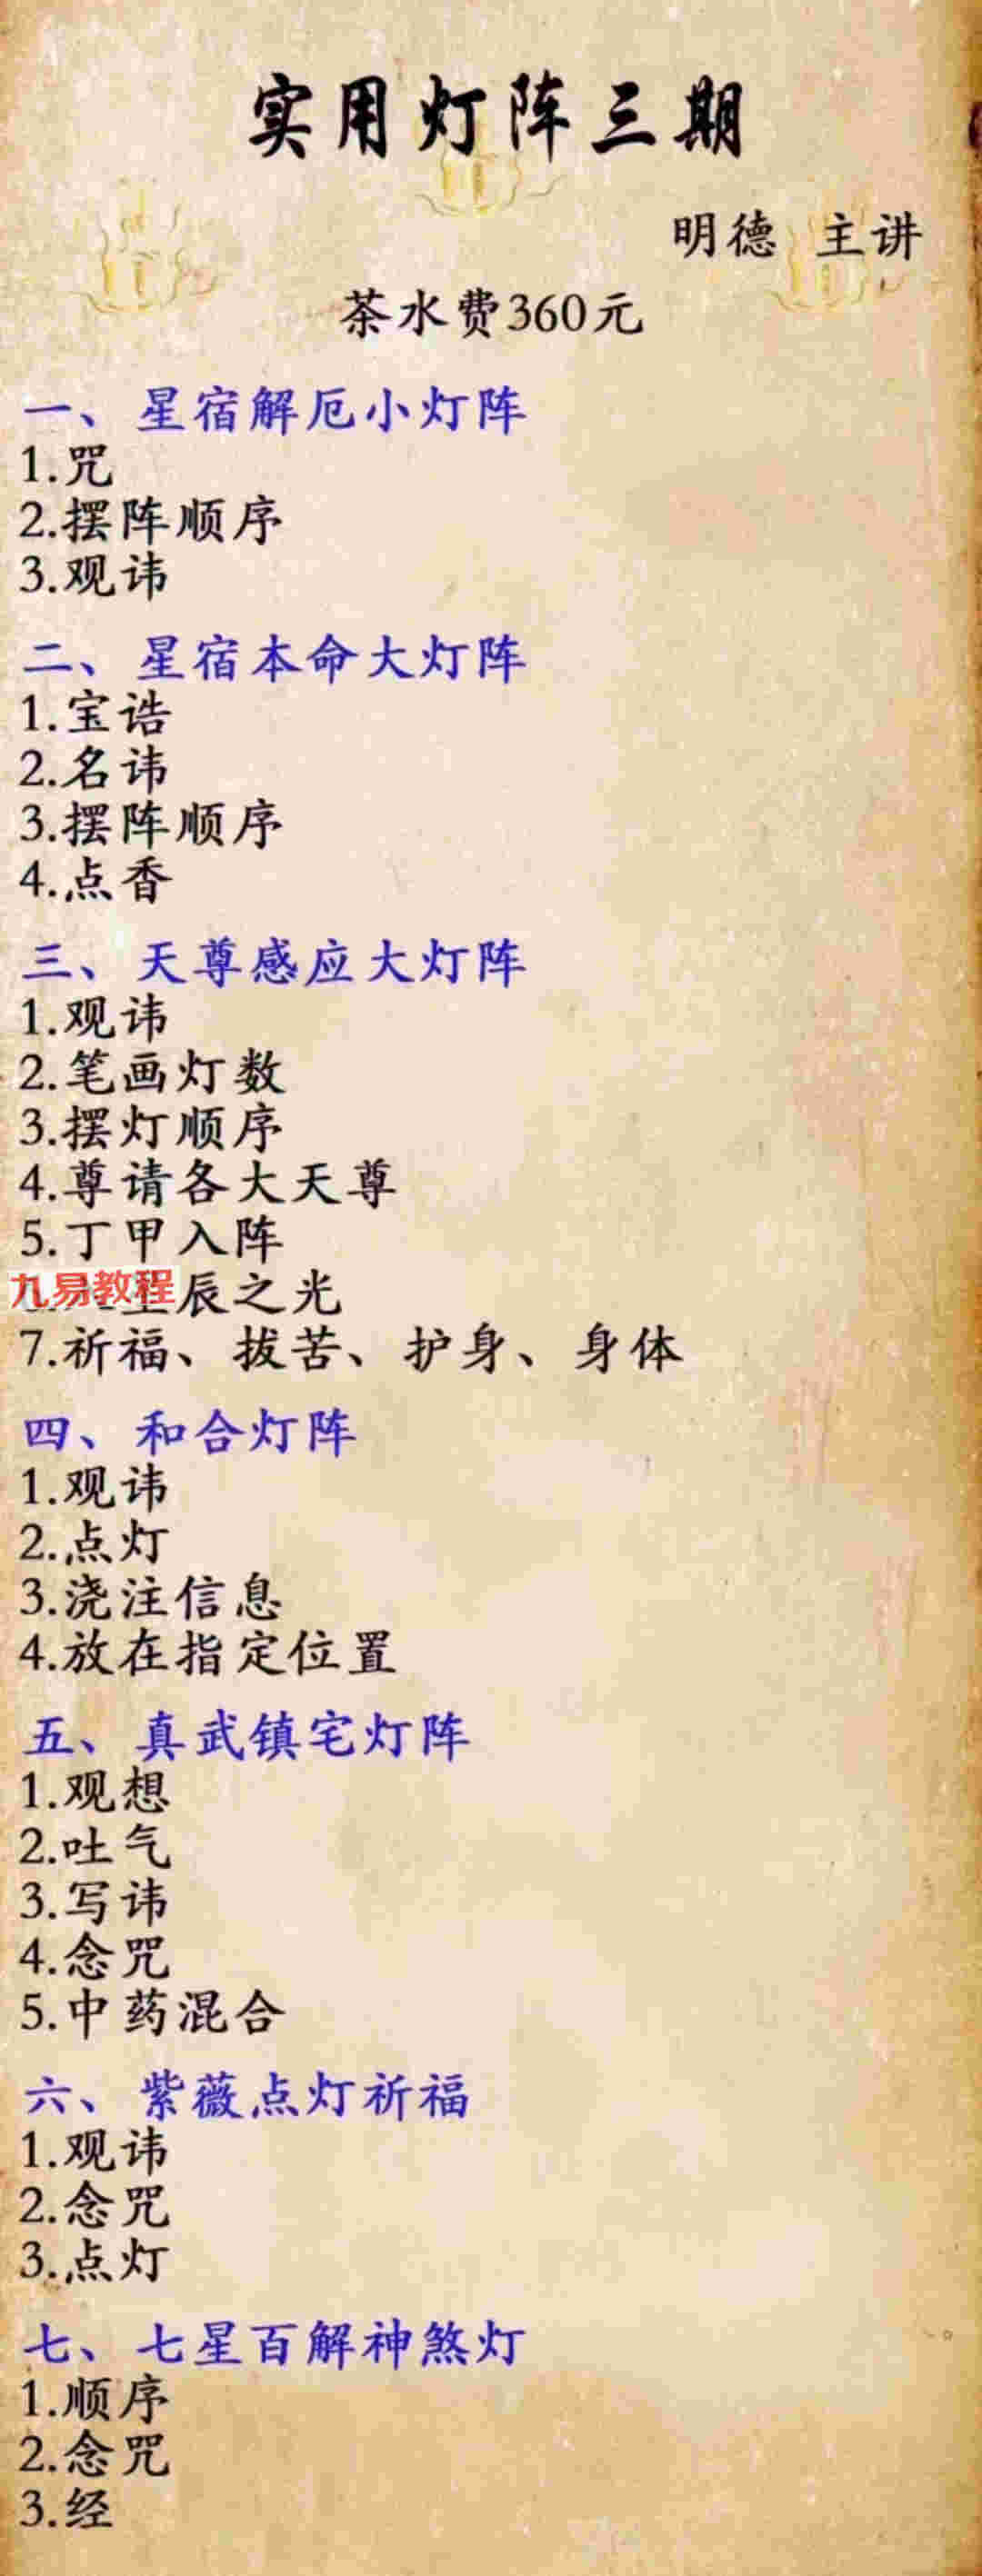 实用灯阵三期
明德 主讲
茶水费360元
一、星宿解厄小灯阵
1.咒
2.摆阵顺序
3.观讳
二、星宿本命大灯阵
1.宝诰
2.名讳
3.摆阵顺序
4.点香
三、天尊感应大灯阵
1.观讳
2.笔画灯数
3.摆灯顺序
4.尊请各大天尊
5.丁甲入阵
九易教程
辰之光
7.祈福、拔苦、护身、身体
四、和合灯阵
1.观讳
2.点灯
3.浇注信息
4.放在指定位置
五、真武镇宅灯阵
1.观想
2.吐气
3.写讳
4.念咒
5.中药混合
六、紫薇点灯祈福
1.观讳
2.念咒
3.点灯
七、七星百解神煞灯
1.顺序
2.念咒
3.经